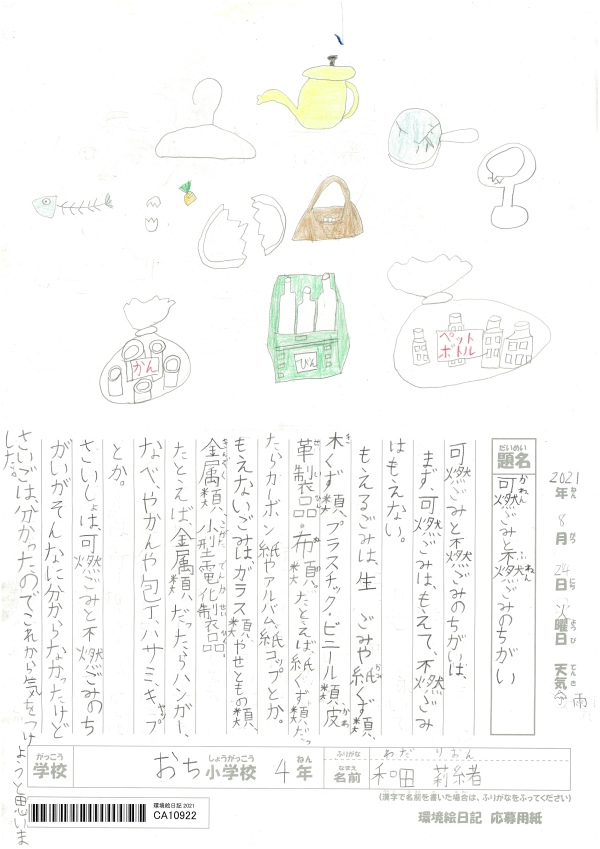 かん
びん
ペット
ボトル
2021年 8月 24日 火曜日 天気 雨
ねん がつ にち ようび てんき
だいめい
題名
かねん ふねん
可燃ごみと不燃ごみのちがい
可燃ごみと不燃ごみのちがいは、
まず、可燃ごみは、もえて、不燃ごみ
はもえない。
もえるごみは、生ごみや紙くず類、
木くず類、プラスチック・ビニール類、皮
革製品・布類。たとえば、紙くず類だっ
たらカーボン紙やアルバム、紙コップとか。
もえないごみは、ガラス類やせともの類、
金属類、小型電化製品。
たとえば、金属類だったらハンガー、
なべ、やかんや包丁、ハサミ、キャップ
とか。
さいしょは、可燃ごみと不燃ごみのち
がいがそんなに分からなかったけど
さいごは、分かったのでこれから気をつけようと思いま
した。
がっこう
学校
おち小学校 4年
しょうがっこう ねん
ふりがな
わだ りおん
なまえ
名前
和田 莉緒
(漢字で名前を書いた場合は、ふりがなをふってください)
環境絵日記2021
CA10922
環境絵日記 応募用紙